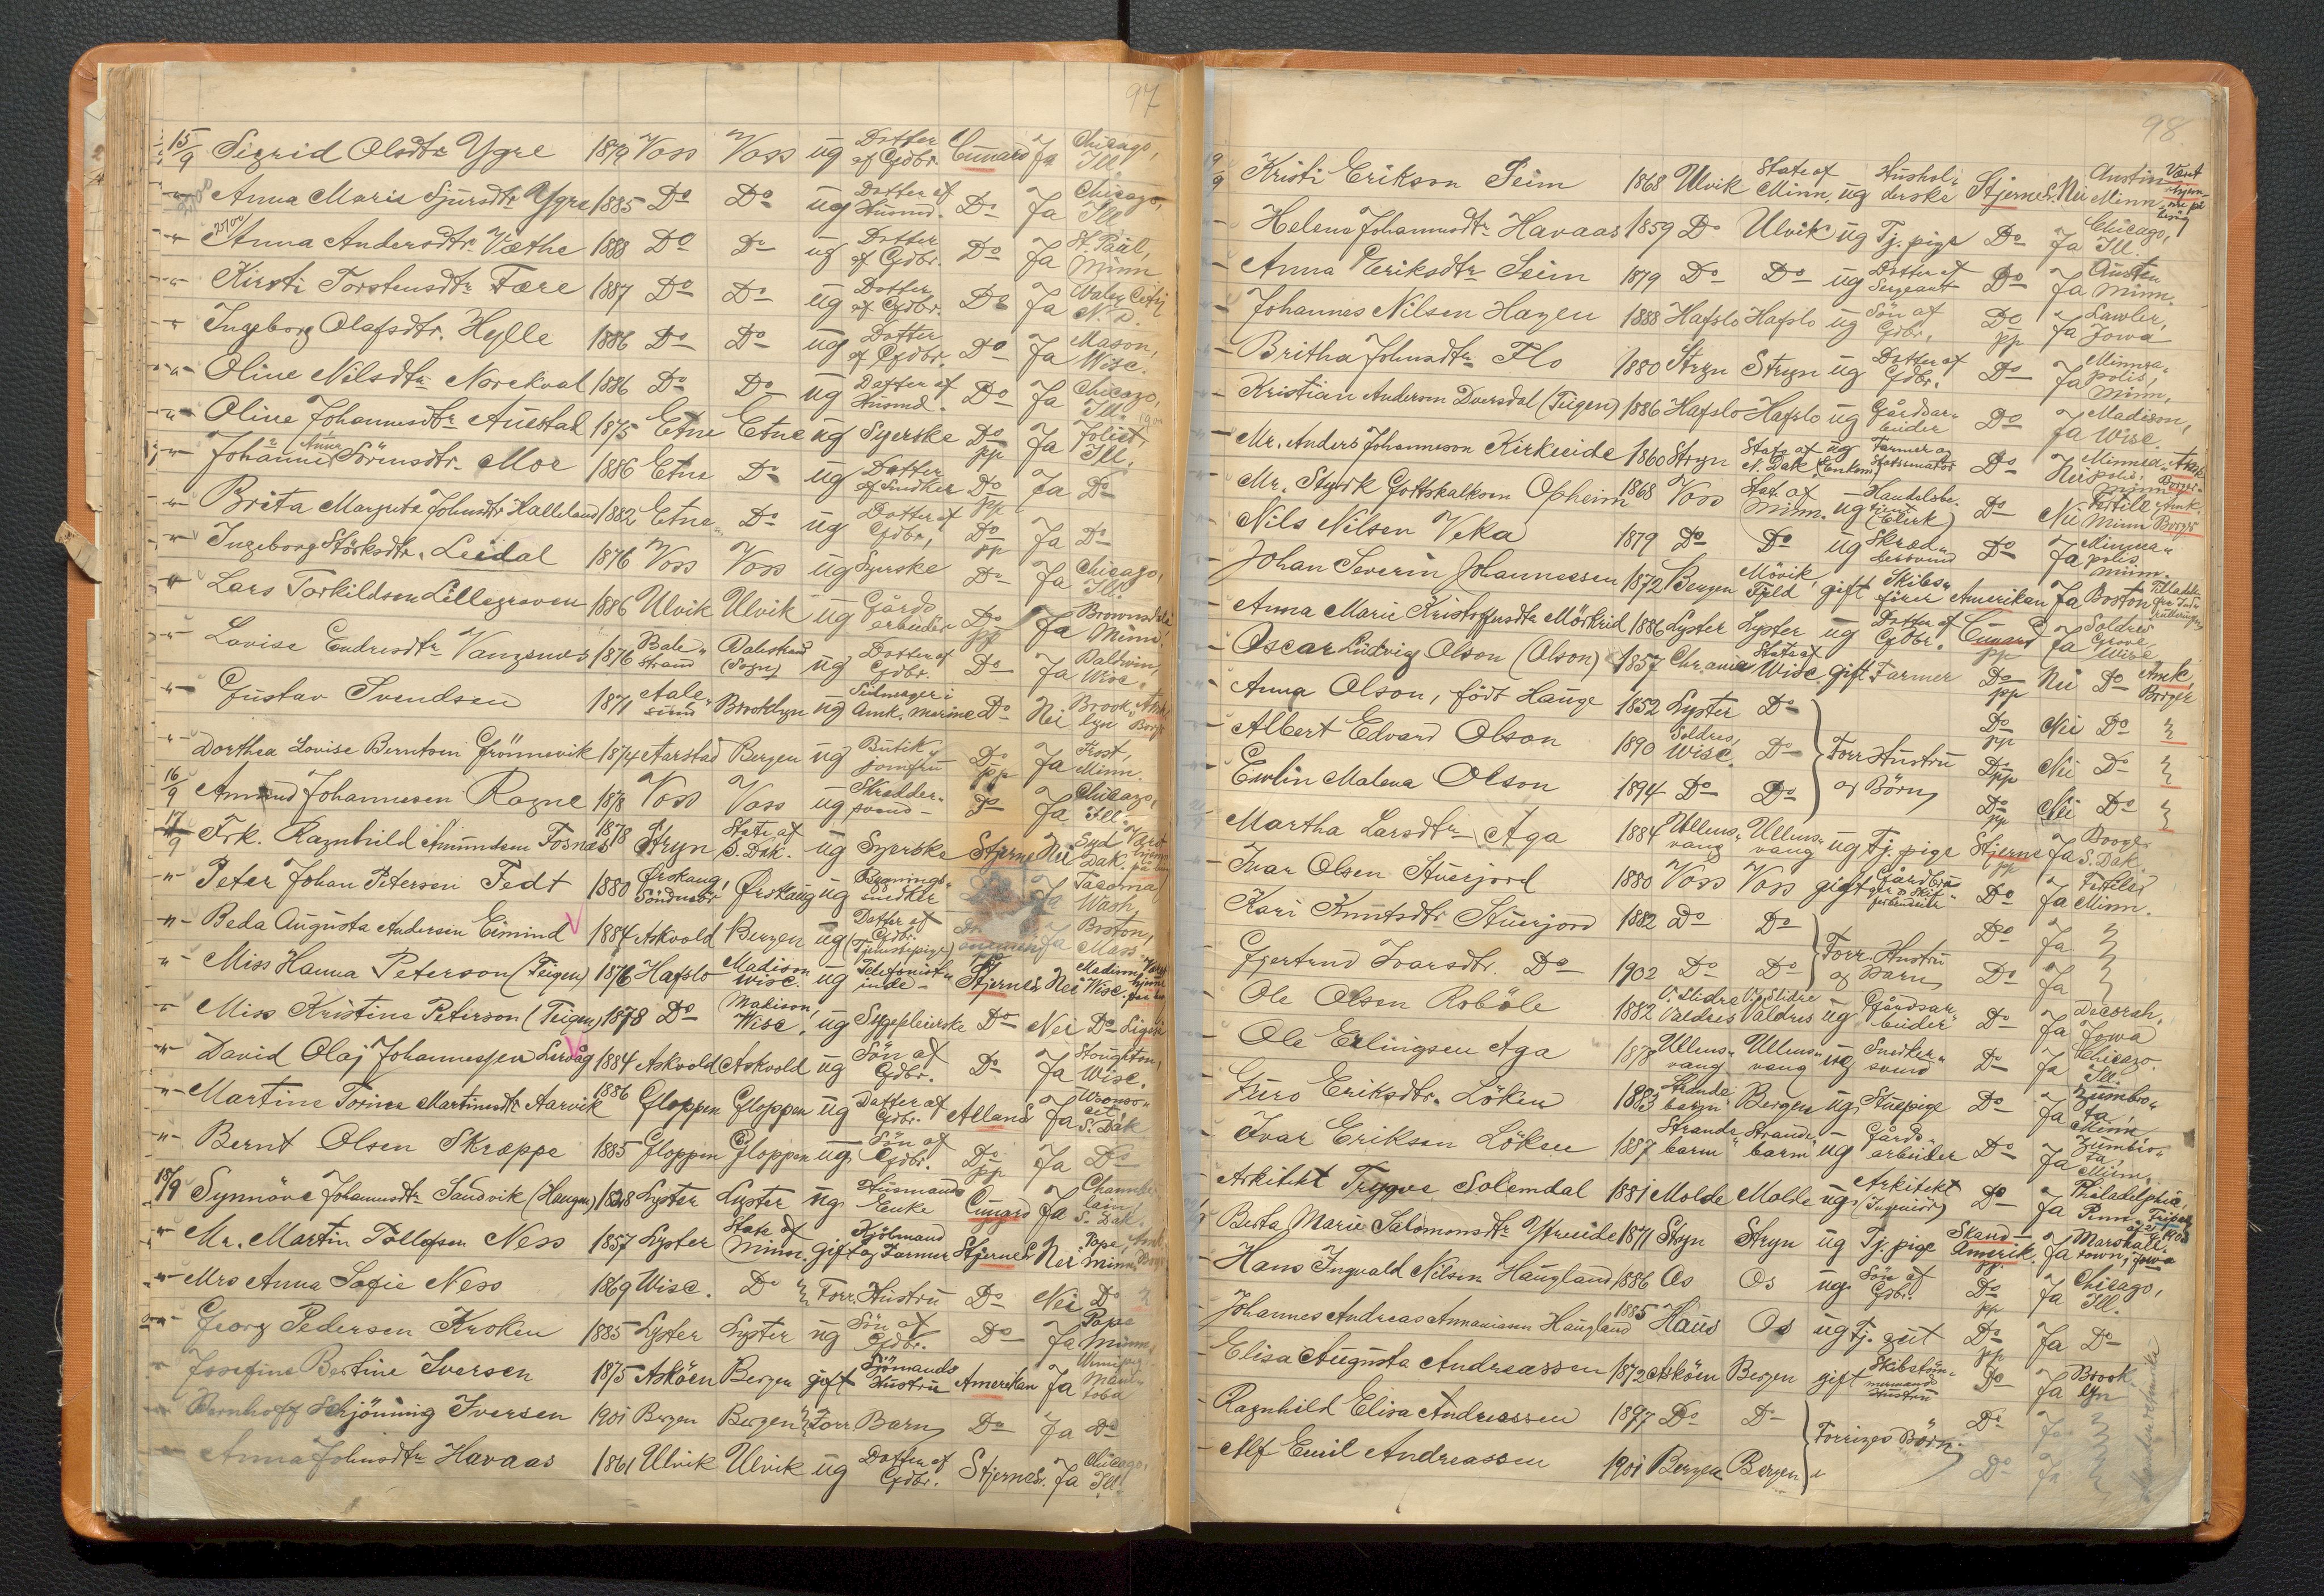 97
15/9 Sigrid Olsdtr Ygre 1879 Voss Voss ug Datter af Gdbr. Cunard Ja Chicago, Ill.
-"- Anna Maria Sjursdtr Ygre 1885 Do Do ug Datter af Husmd. Do Ja Chicago, Ill.
-"- Anna Andersdtr. Væthe 1888 Do Do ug Datter af Gdbr. Do Ja St. Paul, Minn
-"- Kirsti Torstensdtr Fære 1887 Do Do ug Datter af Gdbr. Do Ja Valey City N. D.
-"- Ingeborg Olafsdtr. Hylle 1886 Do Do ug Datter af Gdbr. Do Ja Mason, Wisc.
-"- Oline Nilsdtr Norekval 1886 Do Do ug Datter af Husmd. Do Ja Chicago, Ill.
-"- Oline Johannesdtr Auestad 1875 Etne Etne ug Syerske Do pp Ja Joliet, Ill.
-"- Johanne Anna Sörensdtr. Moe 1886 Etne Do ug Datter af Snedker Do pp Ja Do
-"- Brita Margreta Johnsdtr Halleland 1882 Etne Do ug Datter af Gdbr, Do pp Ja Do
-"- Ingeborg Störksdtr. Leidal 1876 Voss Voss ug Syerske Do Ja Chicago, Ill.
-"- Lars Torkildsen Lillegraven 1886 Ulvik Ulvik ug Gårdsarbeider Do pp Ja Brownsdale Minn.
-"- Lovise Endresdtr Vangsnes 1876 Balestrand Balestrand (Sogn) ug Datter af Gdbr. Do Ja Baldwin, Wisc.
-"- Gustav Svendsen 1871 Aalesund Brooklyn ug Seilmager i Amk. Marine Do Nei Brooklyn Amk Borger
-"- Dorthea Lovise Berntsen Grönnevik 1874 Aarstad Bergen ug Butikjomfru Do pp Ja Frost, Minn.
16/9 Amund Johannesen Rogne 1878 Voss Voss ug Skræddersvend Do Ja Chicago, Ill.
17/9 Frk. Ragnhild Amundsen Fosnæs 1878 Stryn State af S. Dak. ug Syerske Stjerne Nei Syd Dak.
-"- Peter Johan Petersen Fedt 1880 Ørskaug, Søndmør Ørskaug ug Bygningssnedker Ja Tacoma Wash
-"- Beda Augusta Andersen Eimind 1884 Askvold Bergen ug Datter af Gdbr. (Tjenestepige) Ja Boston, Mass
-"- Miss Hanna Peterson (Teigen) 1876 Hafslo Madison Wisc. ug Telefonistinde Stjerne Nei Madison, Wisc.
-"- Miss Kristine Peterson (Teigen) 1878 Do Madison, Wisc. ug Sygepleierske Do Nei Do Ligeså
-"- David Olaj Johannessen Lervåg 1884 Askvold Askvold ug Sön af Gdbr. Do Ja Stoughton, Wisc.
-"- Martine Torine Martinsdtr Aarvik 1886 Gloppen Gloppen ug Datter af Gdbr. Allans Ja S. Dak
-"- Bernt Olsen Skræppe 1885 Gloppen Gloppen ug Sön af Gdbr. Do pp Ja Do
18/9 Synnöve Johannesdtr Sandvik (Haugen) 1828 Lyster Lyster ug Husmands Enke Cunard Ja Chamberlain S. Dak.
-"- Mr. Martin Tollefsen Ness 1857 Lyster State af Minn. gift Kjöbmand og Farmer Stjerne Nei Pope, Minn. Amk. Borger
-"- Mrs Anna Sofie Ness 1869 Wisc. Do Forr. Hustru Do Nei Do
-"- Georg Pedersen Kroken 1885 Lyster Lyster ug Sön af Gdbr. Do Ja Pope Minn.
-"- Josefine Bertine Iversen 1875 Asköen Bergen gift Sjömands Hustru Amerikan Ja Winnipeg Manitoba
-"- Bernhoff Schjönning Iversen 1901 Bergen Bergen Forr. Barn Do Ja Do
-"- Anna Johnsdtr Havaas 1861 Ulvik Ulvik ug Datter af Gdbr. Stjernes. Ja Chicago, Ill.
98
19/9 Kristi Erikson Seim 1868 Ulvik State af Minn. ug Husholderske Stjernes. Nei Austin Minn. Vært hjemme på besög
- Helena Johannesdtr Havaas 1859 Do Ulvik ug Tj. pige Do Ja Chicago, Ill.
- Anna Eriksdtr Seim 1879 Do Do ug Datter af Sergeant Do Ja Austen Minn.
- Johannes Nilsen Hagen 1888 Hafslo Hafslo ug Sön af Gdbr, Do pp Ja Lawler, Jowa
- Britha Johnsdtr Flo 1880 Stryn Stryn ug Datter af Gdbr. Do Ja Minneapolis, Minn,
- Kristian Andersen Dversdal (Teigen) 1886 Hafslo Hafslo ug Gårdsarbeider Do Ja Madison, Wisc.
- Mr. Anders Johannesen Kirkeeide 1860 Stryn State af N. Dak ug (Enkem) Farmer og Statssenator Do Nei Minneapolis. Minn Amk. Borger
- Mr. Styrk Gottskalksen Opheim 1868 Voss Stat. af Minn. ug Handelsbetjent (Clerk) Do Nei Fertile Minn Amk. Borger
- Nils Nilsen Veka 1879 Do Do ug Skræddersvend Do Ja Minneapolis. Minn.
- Johan Severin Johannessen 1872 Bergen Mövik, Fjeld gift Skibsförer Amerikan Ja Boston
- Anna Marie Kristoffersdtr Mörkrid 1886 Lyster Lyster ug Datter af Gdbr. Cunard pp Ja Soldres Grove Wisc
- Oscar Ludvig Olson (Olson) 1857 Chrania State af Wisc. gift Farmer Do pp Nei Do Amk. Borger
- Anna Olson, födt Hauge 1852 Lyster Do Do pp Nei Do
- Albert Edvard Olson 1890 Soldres, Wisc. Do Forr Hustru Do pp Nei Do
- Ewlin Malena Olson 1894 Do Do og Börn Do pp Nei Do
- Martha Larsdtr Aga 1884 Ullensvang Ullensvang ug Tj. pige Stjerne pp Ja S. Dak
- Ivar Olsen Stuerjord 1880 Voss Voss gift Do Ja Fertile, Minn.
- Kari Knutsdtr Stuerjord 1882 Do Do Do Ja
- Gjertrud Ivarsdtr. Do 1902 Do Do Forr. Hustru og Barn Do Ja
- Ole Olsen Roböle 1882 V. Slidre Valdres V. Slidre Valdres ug Gårdsarbeider Do Ja Decorah, Jowa
- Ole Erlingsen Aga 1878 Ullensvang Ullensvang ug Snedkersvend Do Ja Chicago. Ill.
- Guro Eriksdtr. Löken 1883 Strandebarm Bergen ug Stuepige Do Ja Zumbrota, Minn
- Ivar Eriksen Löken 1887 Strandebarm Strandebarm ug Gårdsarbeider Do Ja Zumbrota, Minn.
- Arkitekt Trygve Solemdal 1881 Molde Molde ug Arkitekt (Ingeniör) Do Ja Philadelphia. Penn.
- Berta Marie Salomonsdtr Ytreeide 1871 Stryn Stryn ug Tj. pige Skand-Amerik. pp Ja Marshalltown, Jowa
- Hans Ingvald Nilsen Haugland 1886 Os Os ug. Sön af Gdbr. Do pp Ja Chicago, Ill.
- Johannes Andreas Annaniasen Haugland 1885 Haus Os ug Tj. gut Do pp Ja Do
- Elisa Augusta Andreassen 1872 Asköen Bergen gift Skibstömmermands Hustru Do Ja Brooklyn
- Ragnhild Elisa Andreassen 1897 Do Do Forriges Börn Do Ja
- Alf Emil Andreassen 1901 Bergen Bergen Do Ja